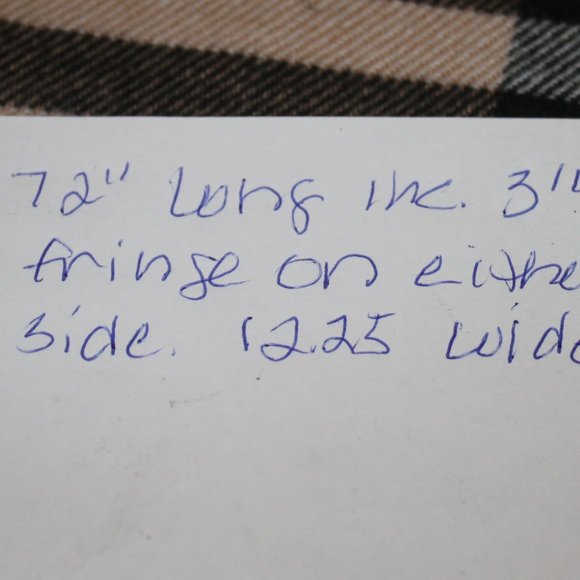 72" long inc. 3"
fringe on eithe
side. 12.25 wide